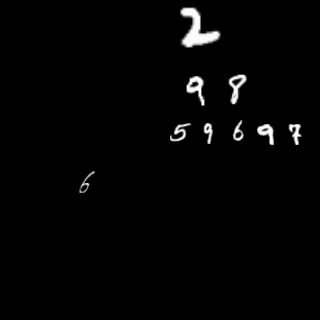 2
98
59697
6